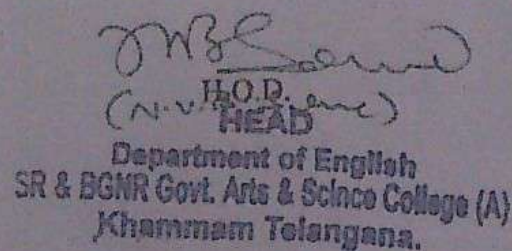 H.O.D.
(N.V.
HEAD
Department of English
SR & BGNR Govt. Arts & Scince College (A)
Khammam Telangana.